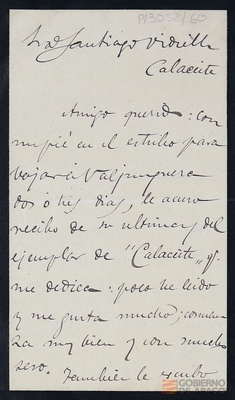 P/3052/60
Sr. D. Santiago Vidiella
Calaceite
Amigo querido: con
un pié en el estribo para
bajar á Valjunquera
dos ó tres dias, le acuso
recibo de su ultima y del
ejemplar de "Calaceite" q.
me dedica: poco he leido
y me gusta mucho; comien
za muy bien y con mucho
seso. Tambien le
GOBIERNO
DE ARAGON